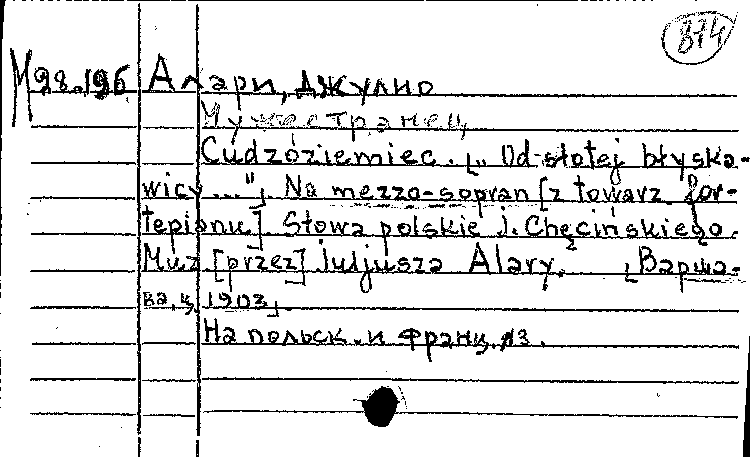 874
М 98.196 Алари, Джулио
Чужестранец
Cudzóziemiec. [„Od złotej błyska-
wicy..."] Na mezzo-sopran [z towarz for-
tepianu] Słowa polskie J. Chęcińskiego.
Muz [przez] Juljusza Alary. [Варша-
ва, ц. 1903].
На польск. и франц. яз.